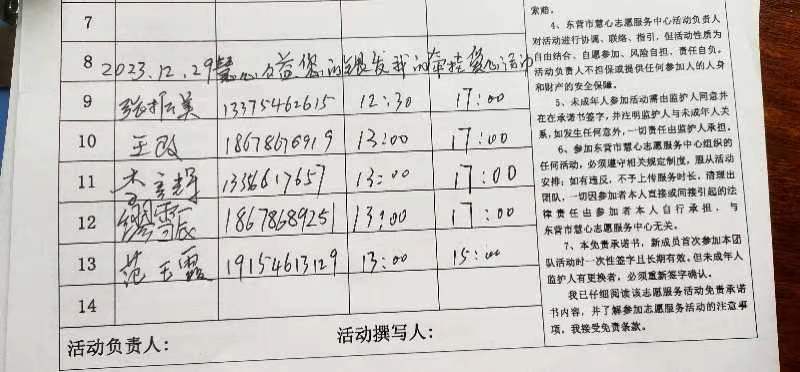 7
8 2023.12.29慧心公益您的银发我的牵挂爱心活动
9 张振美 13375462615 12:30 17:00
10 王改 18678676919 13:00 17:00
11 13356617657 13:00 17:00
12 缪霞 18678689251 13:00 17:00
13 范玉霞 19154613129 13:00 15:00
14
活动负责人: 活动撰写人:
索赔。
4、东营市慧心志愿服务中心活动负责人
对活动进行协调、联络、指引,但活动性质为
自由结合、自愿参加、风险自担、责任自负,
活动负责人不担保或提供任何参加人的人身
和财产的安全保障。
5、未成年人参加活动需由监护人同意并
在在承诺书签字,并注明监护人与未成年人关
系,如发生任何意外,一切责任由监护人承担。
6、参加东营市慧心志愿服务中心组织的
任何活动,必须遵守相关规定制度,服从活动
安排;如有违反,不予上传服务时长,清理出
团队,一切因参加者本人直接或间接引起的法
律责任由参加者本人自行承担,与
东营市慧心志愿服务中心无关。
7、本免责承诺书,新成员首次参加本团
队活动时一次性签字且长期有效。但未成年人
监护人有更换者,必须重新签字确认。
我已仔细阅读该志愿服务活动免责承诺
书内容,并了解参加志愿服务活动的注意事
项,我接受免责条款。